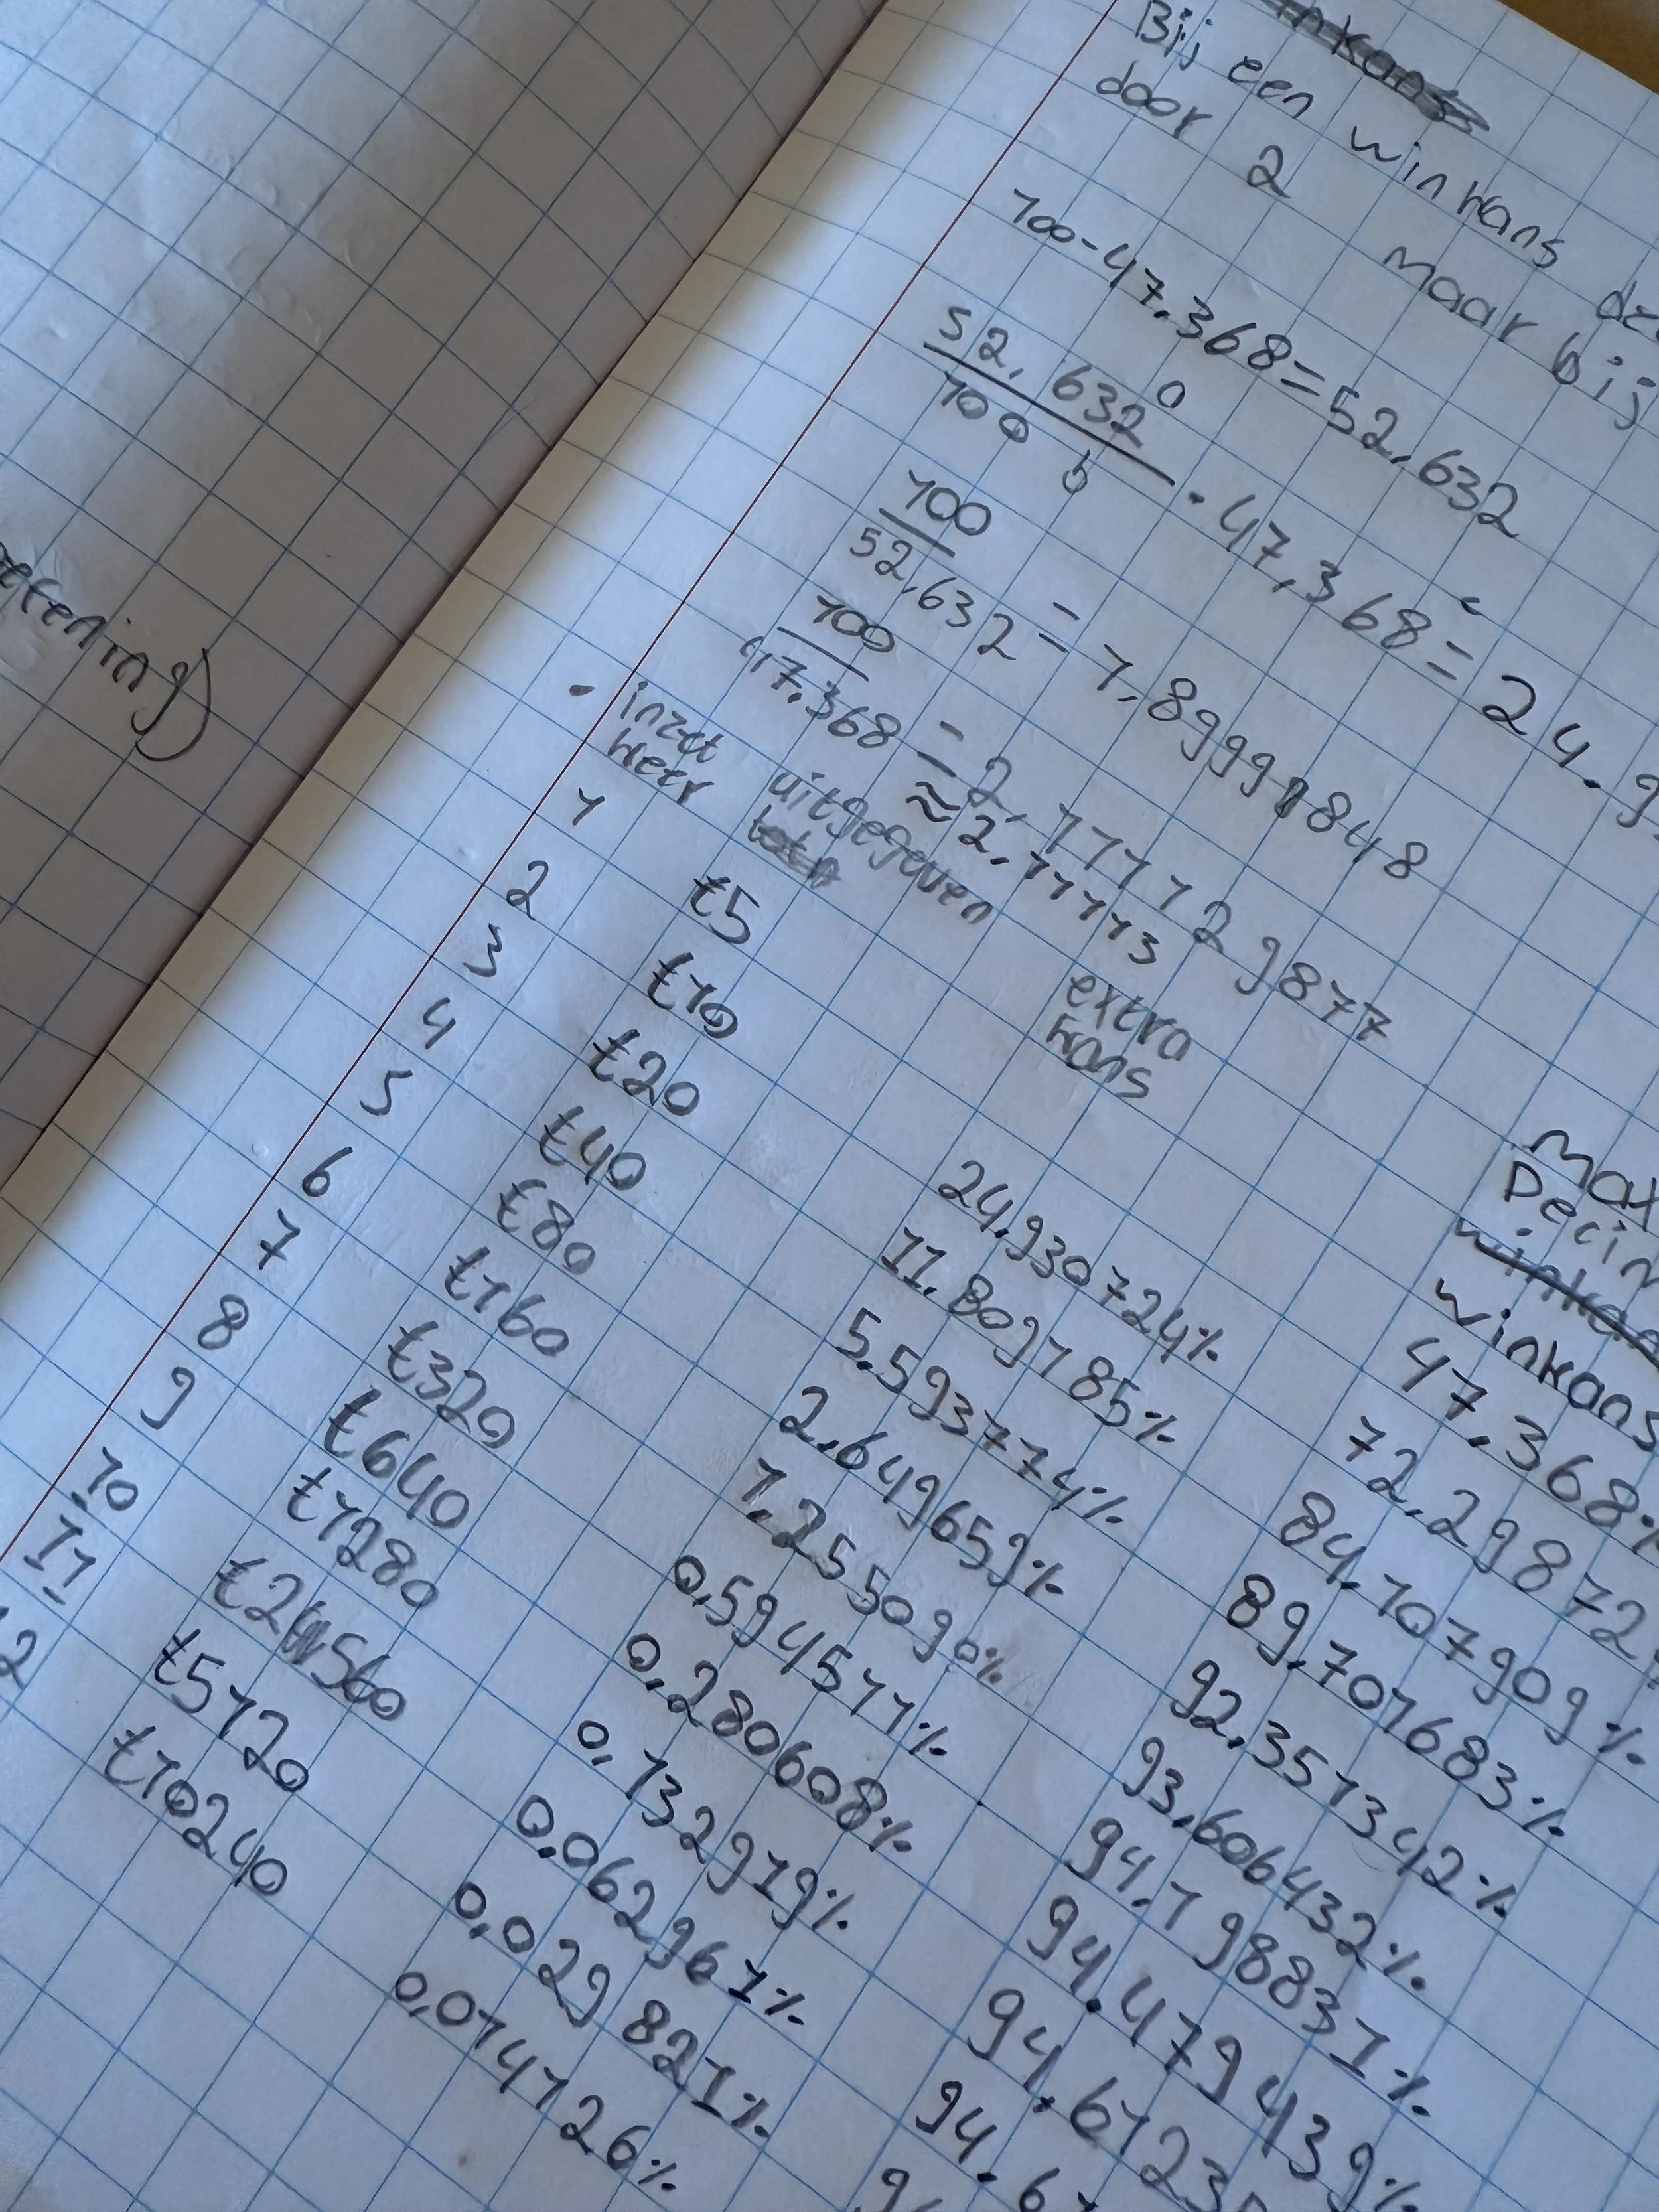 Bij een winkans
door 2 maar bij
100-47.368=52.632
52.632
100
· 47.368 = 24.9
100
52.632
= 1.89999848
100
47.368
= 2.111129877
≈ 2.11113
inzet
keer
uitgegeven
extra
kans
winkans
1 €5 47.368%
2 €10 24.930724% 72.298724
3 €20 11.809185% 84.107909%
4 €40 5.593774% 89.701683%
5 €80 2.649659% 92.351342%
6 €160 1.255090% 93.606432%
7 €320 0.594511% 94.198831%
8 €640 0.280608% 94.479439%
9 €1280 0.132919% 94.61235
10 €2560 0.062961% 94.6
11 €5120 0.029821%
€10240 0.014126%